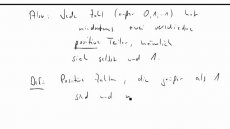 Also: Jede Zahl (außer 0, 1, -1) hat
mindestens zwei verschiedene
positive Teiler, nämlich
sich selbst und 1.
Def: Positive Zahlen, die größer als 1
sind und